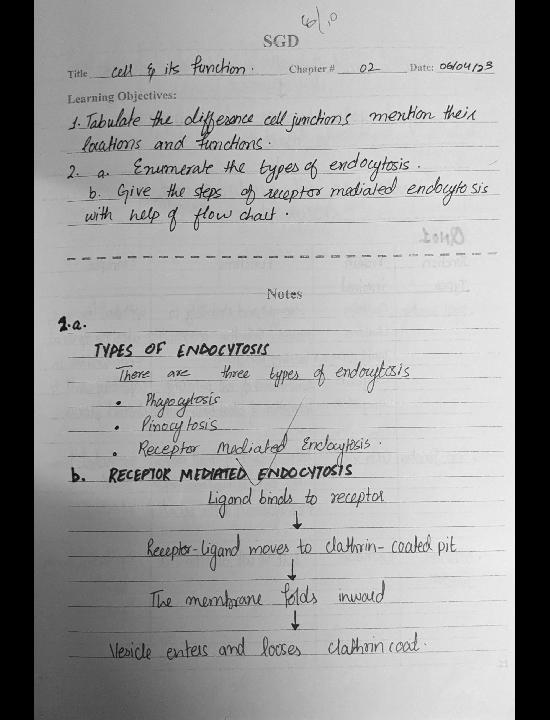 SGD
Title cell & its function. Chapter # 02 Date: 06/04/23
Learning Objectives:
1. Tabulate the difference cell junctions mention their
locations and functions.
2. a. Enumerate the types of endocytosis.
b. Give the steps of receptor mediated endocytosis
with help of flow chart.
Notes
2.a.
TYPES OF ENDOCYTOSIS
There are three types of endocytosis
• Phagocytosis
• Pinocytosis
• Receptor Mediated Endocytosis.
b. RECEPTOR MEDIATED ENDOCYTOSIS
Ligand binds to receptor
↓
Receptor-Ligand moves to clathrin-coated pit
↓
The membrane folds inward
↓
Vesicle enters and looses clathrin coat.